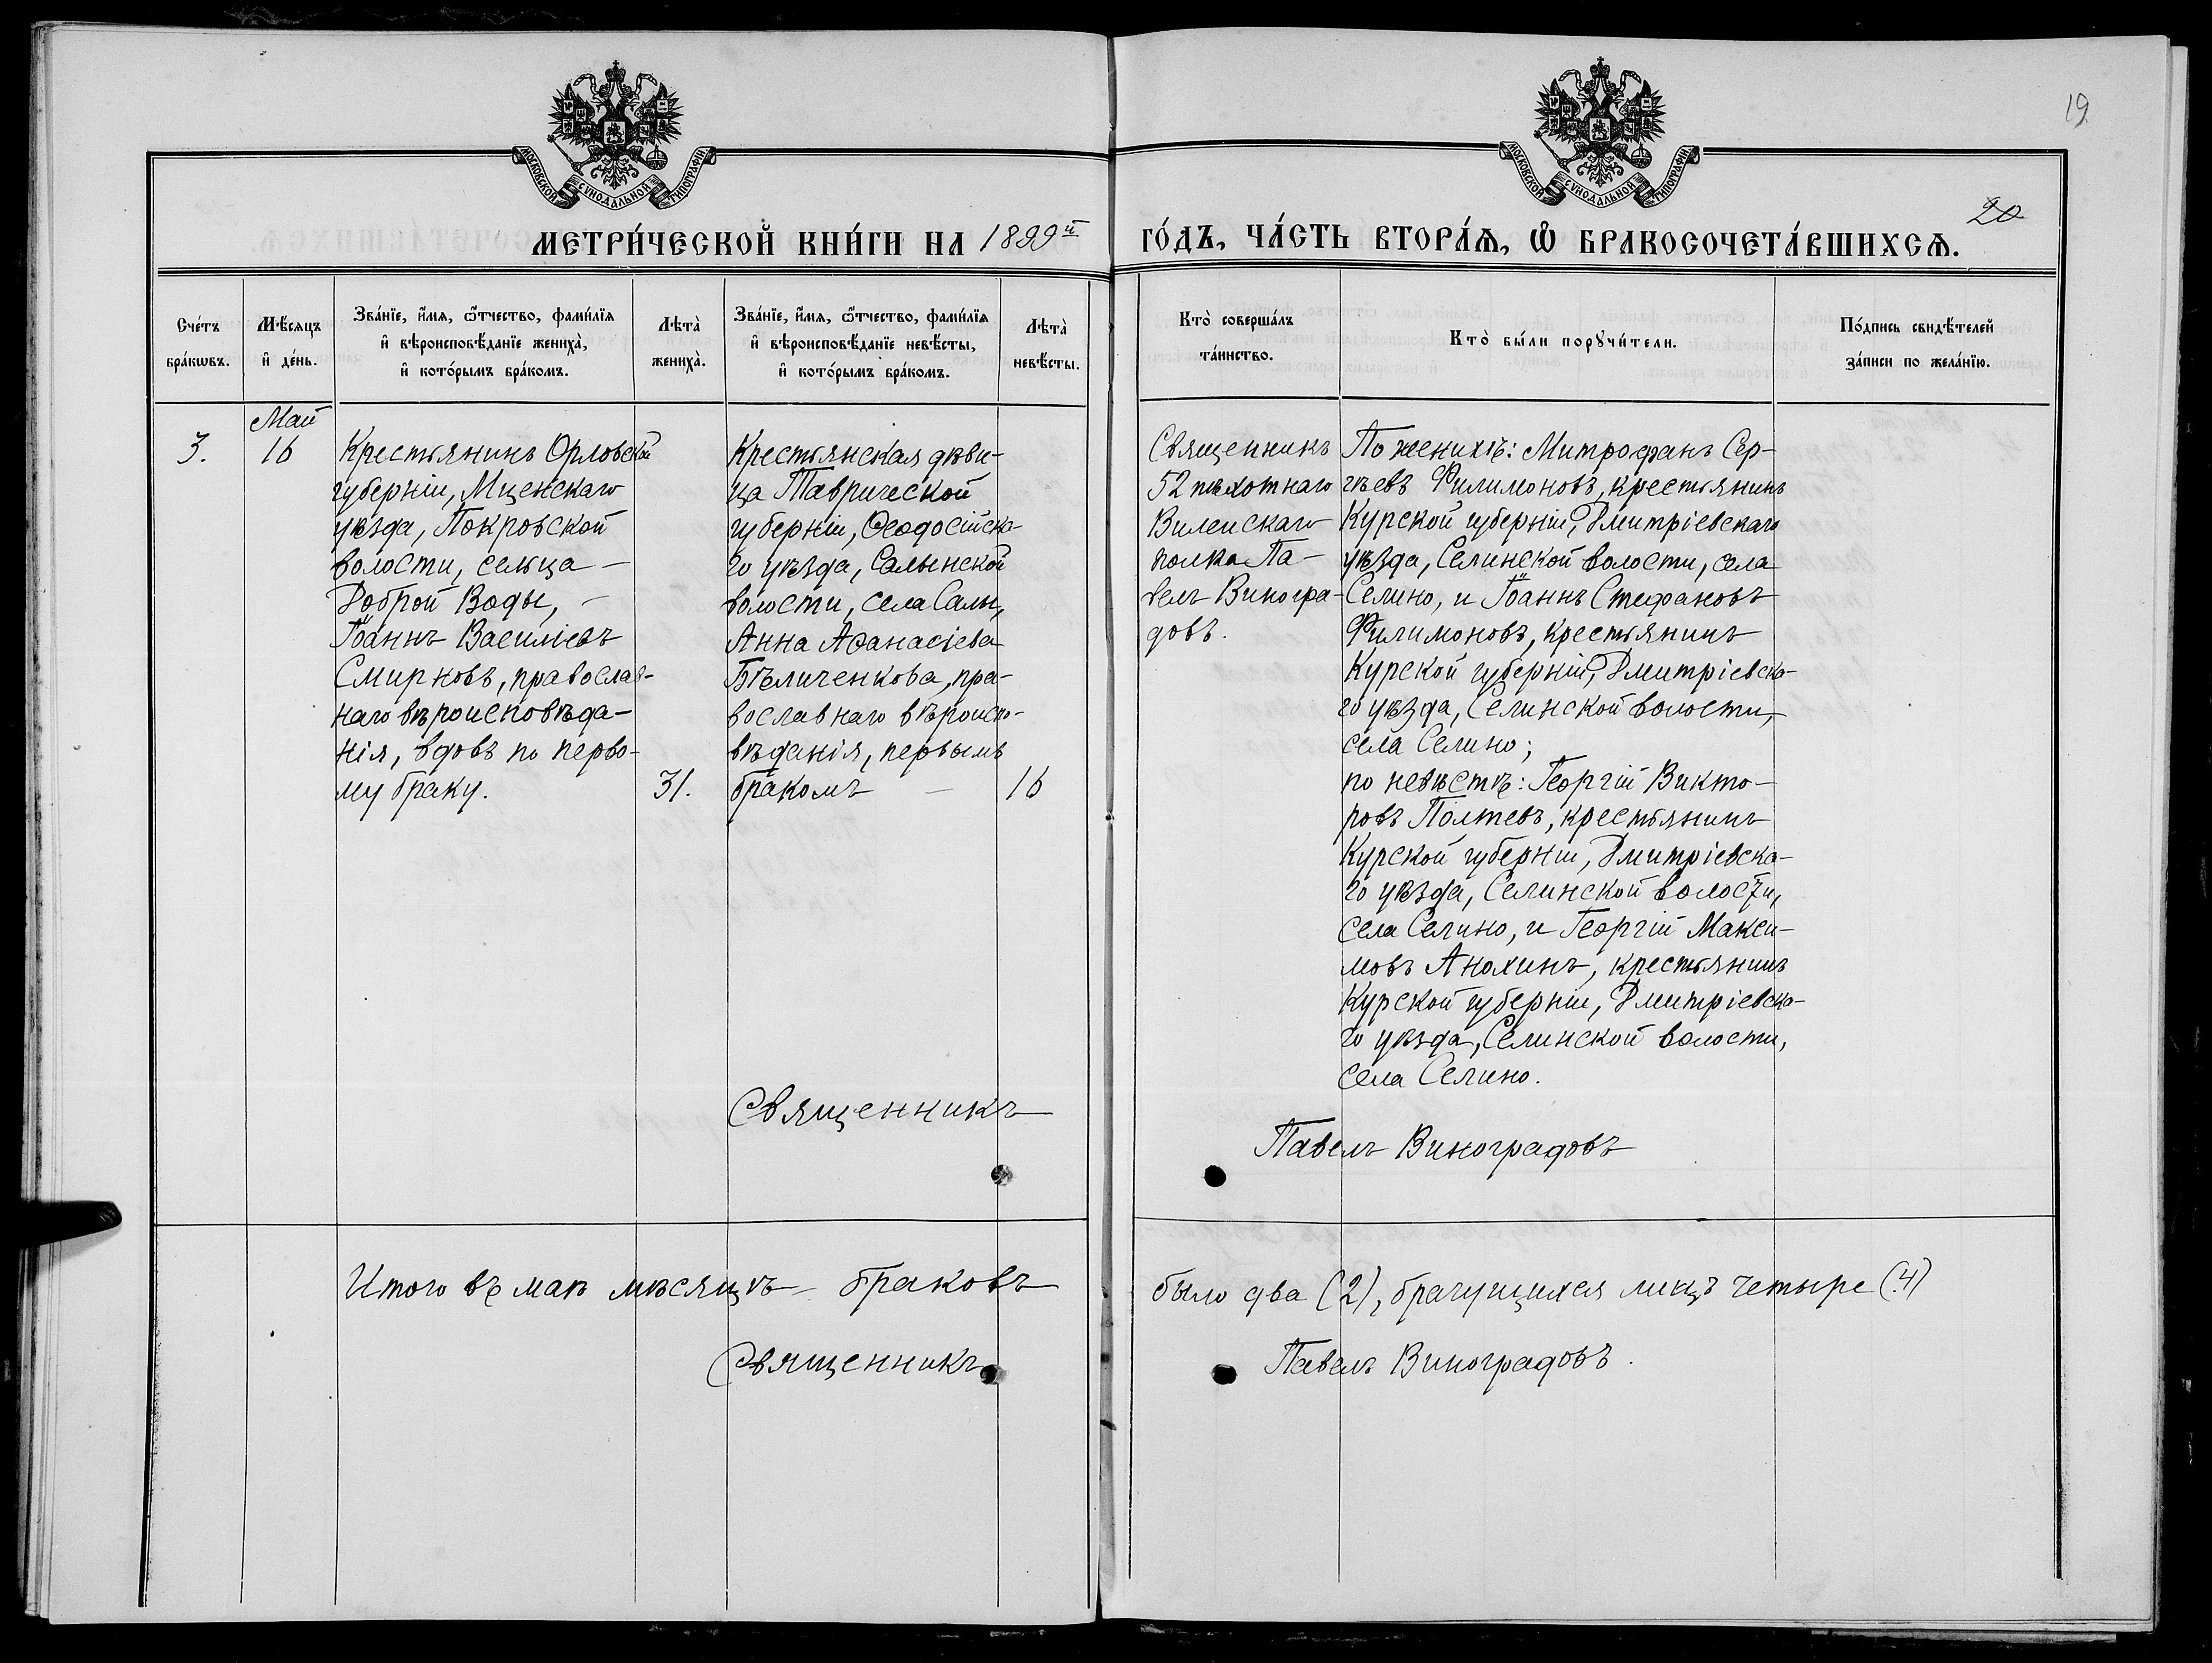 19
20
МОСКОВСКОЙ СѴНОДАЛЬНОЙ ТИПОГРАФІИ
МОСКОВСКОЙ СѴНОДАЛЬНОЙ ТИПОГРАФІИ
МЕТРИ́ЧЕСКОЙ КНИ́ГИ НА 1899й ГО́ДЪ, ЧА́СТЬ ВТОРА́Ѧ, Ѽ БРАКОСОЧЕТА́ВШИХСѦ.
Сче́тъ
бра́кѡвъ.
Мѣ́сяцъ
и҆ де́нь.
Зва́нїе, и҆́мѧ, ѻ҆́тчество, фами́лїѧ
и҆ вѣроисповѣ́данїе жениха̀,
и҆ кото́рымъ бра́комъ.
Лѣта̀
жениха̀.
Зва́нїе, и҆́мѧ, ѻ҆́тчество, фами́лїѧ
и҆ вѣроисповѣ́данїе невѣ́сты,
и҆ кото́рымъ бра́комъ.
Лѣта̀
невѣ́сты.
Кто̀ соверша́лъ
та́инство.
Кто̀ бы́ли порꙋчи́тели.
По́дпись свидѣ́телей
за́писи по жела́нїю.
3.
Май
16
Крестьянинъ Орловской
губерніи, Мценскаго
уѣзда, Покровской
волости, сельца –
Доброй Воды, –
Іоаннъ Василіевъ
Смирновъ, православ-
наго вѣроисповѣда-
нія, вдовъ по перво-
му браку.
31.
Крестьянская дѣви-
ца Таврической
губерніи, Ѳеодосійска-
го уѣзда, Салынской
волости, села Салы,
Анна Аѳанасіева
Бѣличенкова, пра-
вославнаго вѣроиспо-
вѣданія, первымъ
бракомъ –
16
Священникъ
52 пѣхотнаго
Виленскаго
полка Па-
велъ Виногра-
довъ.
По женихѣ: Митрофанъ Сер-
гѣевъ Филимоновъ, крестьянинъ
Курской губерніи, Дмитріевскаго
уѣзда, Селинской волости, села
Селино, и Іоаннъ Стефановъ
Филимоновъ, крестьянинъ
Курской губерніи, Дмитріевска-
го уѣзда, Селинской волости,
села Селино;
по невѣстѣ: Георгій Викто-
ровъ Полтевъ, крестьянинъ
Курской губерніи, Дмитріевска-
го уѣзда, Селинской волости,
села Селино, и Георгій Макси-
мовъ Анохинъ, крестьянинъ
Курской губерніи, Дмитріевска-
го уѣзда, Селинской волости,
села Селино.
Священникъ Павелъ Виноградовъ
Итого въ маѣ мѣсяцѣ браковъ было два (2), брачущихся лицъ четыре (4)
Священникъ Павелъ Виноградовъ.